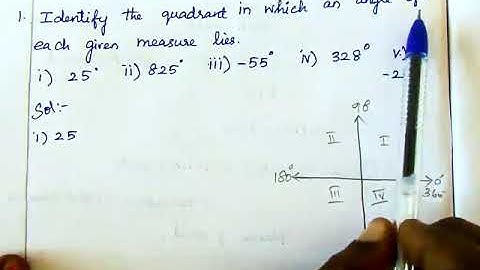 1. Identify the quadrant in which an angle of
each given measure lies.
i) 25° ii) 825° iii) -55° iv) 328° v)
-2
Sol:-
i) 25
90
II I
180° 0°
360°
III IV